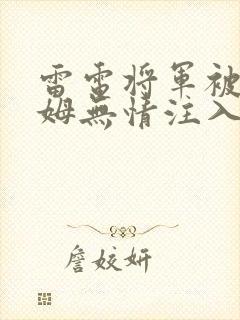 雷電将軍被
姆無情注入
詹姣妍